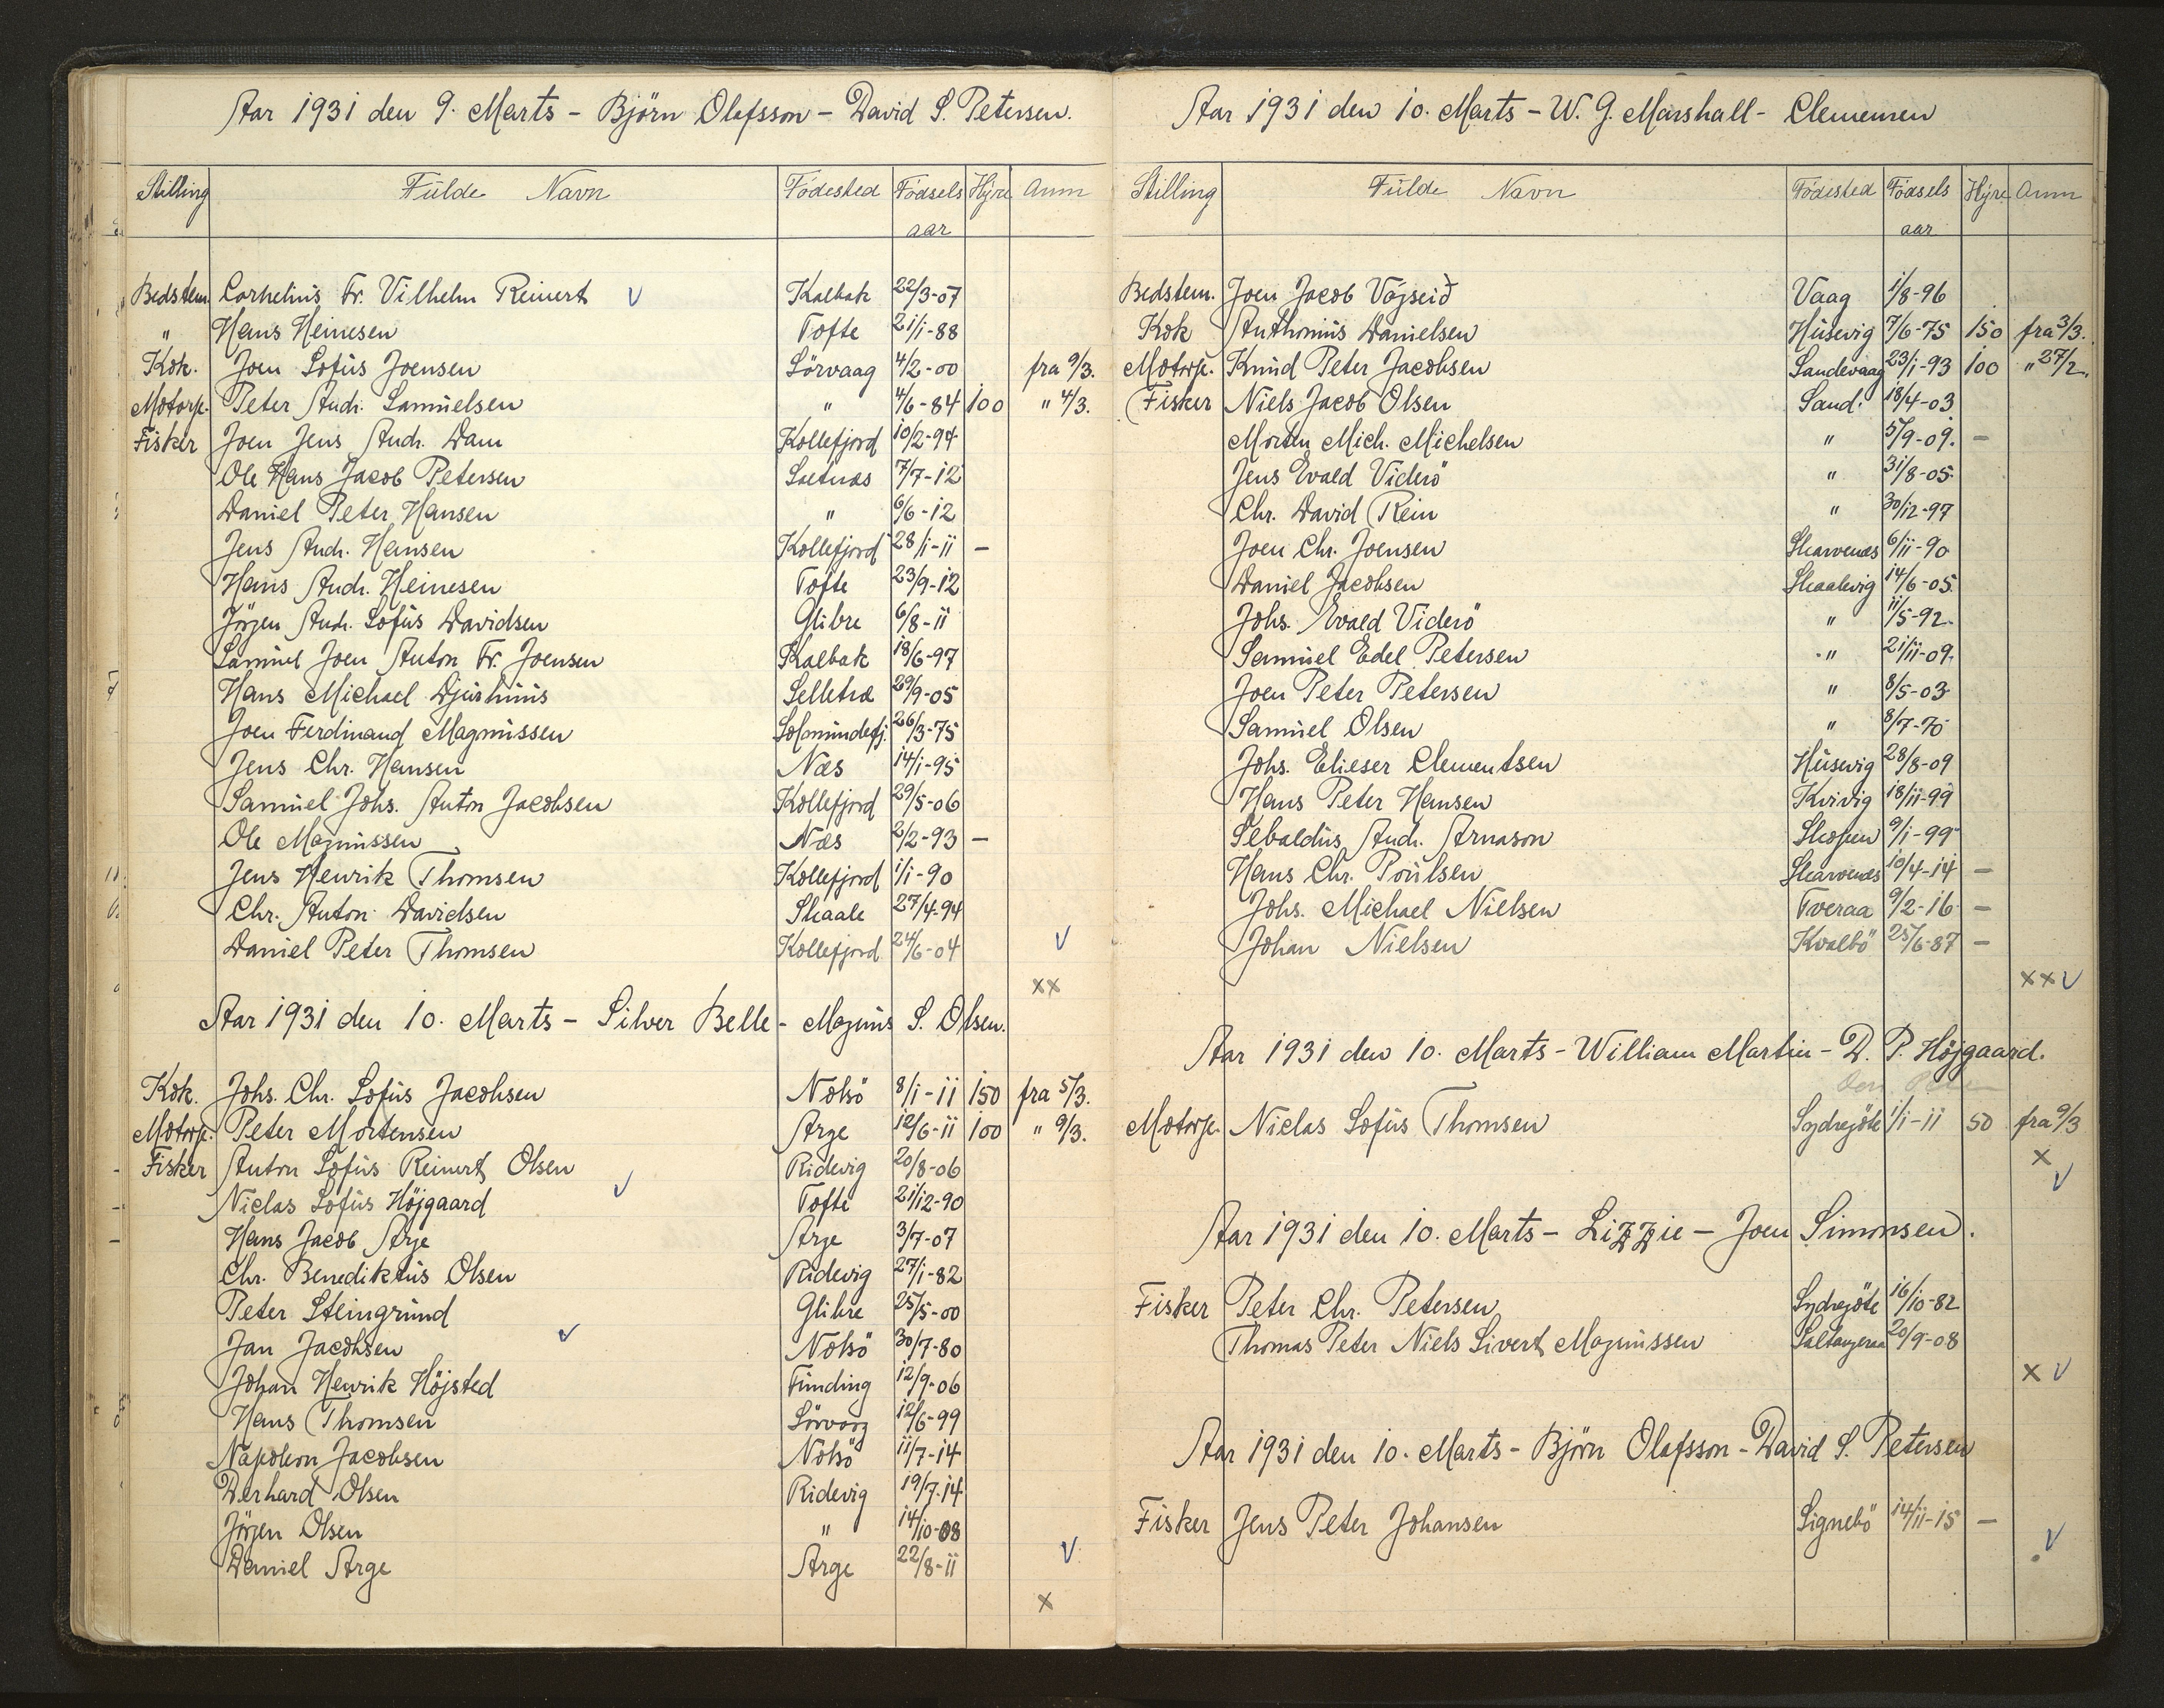 Aar 1931 den 9. Marts - Björn Olafsson - David S. Petersen.
Stilling Fulde Navn Födested Födsels aar Hyre Anm
Bedstem. Cornelius Fr. Vilhelm Reinert V Kalbak 22/3-07
" Hans Heinesen Tofte 21/1-88
Kok. Joen Sofus Joensen Sörvaag 4/2-00 fra 9/3.
Motorp. Peter Andr. Samuelsen " 4/6-84 100 " 4/3.
Fisker Joen Jens Andr. Dam Kollefjord 10/2-94
Ole Hans Jacob Petersen Saetnæs 7/7-12
Daniel Peter Hansen " 6/6-12
Jens Andr. Hansen Kollefjord 28/1-11 -
Hans Andr. Heinesen Tofte 23/9-12
Jörgen Andr. Sofus Davidsen Glibre 6/8-11
Samuel Joen Anton Fr. Joensen Kalbak 18/6-97
Hans Michael Djurhuus Selletræ 29/9-05
Joen Ferdinand Magnussen Solmundefj. 26/3-75
Jens Chr. Hansen Næs 14/1-95
Samuel Johs. Anton Jacobsen Kollefjord 29/5-06
Ole Magnussen Næs 2/2-93 -
Jens Henrik Thomsen Kollefjord 1/1-90
Chr. Anton Davidsen Skaale 27/4-94
Daniel Peter Thomsen Kollefjord 24/6-04 V
xx
Aar 1931 den 10. Marts - Silver Belle - Magnus S. Olsen.
Kok. Johs. Chr. Sofus Jacobsen Nolsö 8/1-11 150 fra 5/3.
Motorp. Peter Mortensen Arge 12/6-11 100 " 9/3.
Fisker Anton Sofus Reinert Olsen Ridevig 20/8-06
Niclas Sofus Höjgaard V Tofte 21/12-90
Hans Jacob Arge Arge 3/7-07
Chr. Benediktus Olsen Ridevig 27/1-82
Peter Steingrund Glibre 25/5-00
Jan Jacobsen V Nolsö 30/7-80
Johan Henrik Höjsted Funding 12/9-06
Hans Thomsen Sörvaag 12/6-99
Napoleon Jacobsen Nolsö 11/7-14
Derhard Olsen Ridevig 19/7-14
Jörgen Olsen " 14/10-08
Daniel Arge Arge 22/8-11 V
x
Aar 1931 den 10. Marts - W. G. Marshall - Clemensen
Stilling Fulde Navn Födested Födsels aar Hyre Anm
Bedstem. Joen Jacob Vágseið Vaag 1/8-96
Kok Anthonius Danielsen Husevig 7/6-75 150 fra 3/3.
Motorp. Knud Peter Jacobsen Sandevaag 23/1-93 100 " 27/2.
Fisker Niels Jacob Olsen Sand. 18/4-03
Morten Mich. Michelsen " 5/9-09. -
Jens Evald Viderö " 31/8-05.
Chr. David Rein " 30/12-97
Joen Chr. Joensen Skarvenes 6/11-90
Daniel Jacobsen Skaalevig 14/6-05.
Johs. Evald Viderö " 11/5-92.
Samuel Edel Petersen " 21/11-09.
Joen Peter Petersen " 8/5-03
Samuel Olsen " 8/7-70
Johs. Elieser Clementsen Husevig 28/8-09
Hans Peter Hansen Kvivig 18/11-99
Sebaldus Andr. Arnason Skopen 9/1-99
Hans Chr. Poulsen Skarvenes 10/4-14 -
Johs. Michael Nielsen Tveraa 9/2-16 -
Johan Nielsen Kvalbö 25/6-87 -
xx V
Aar 1931 den 10. Marts - William Martin - D. P. Höjgaard.
Motorp. Niclas Sofus Thomsen Sydregöte 1/1-11 50 fra 9/3
x
V
Aar 1931 den 10. Marts - Lizzie - Joen Simonsen.
Fisker Peter Chr. Petersen Sydregöte 16/10-82
Thomas Peter Niels Sivert Magnussen Saltangeraa 20/9-08
x V
Aar 1931 den 10. Marts - Björn Olafsson - David S. Petersen
Fisker Jens Peter Johansen Signebö 14/11-15 -
V